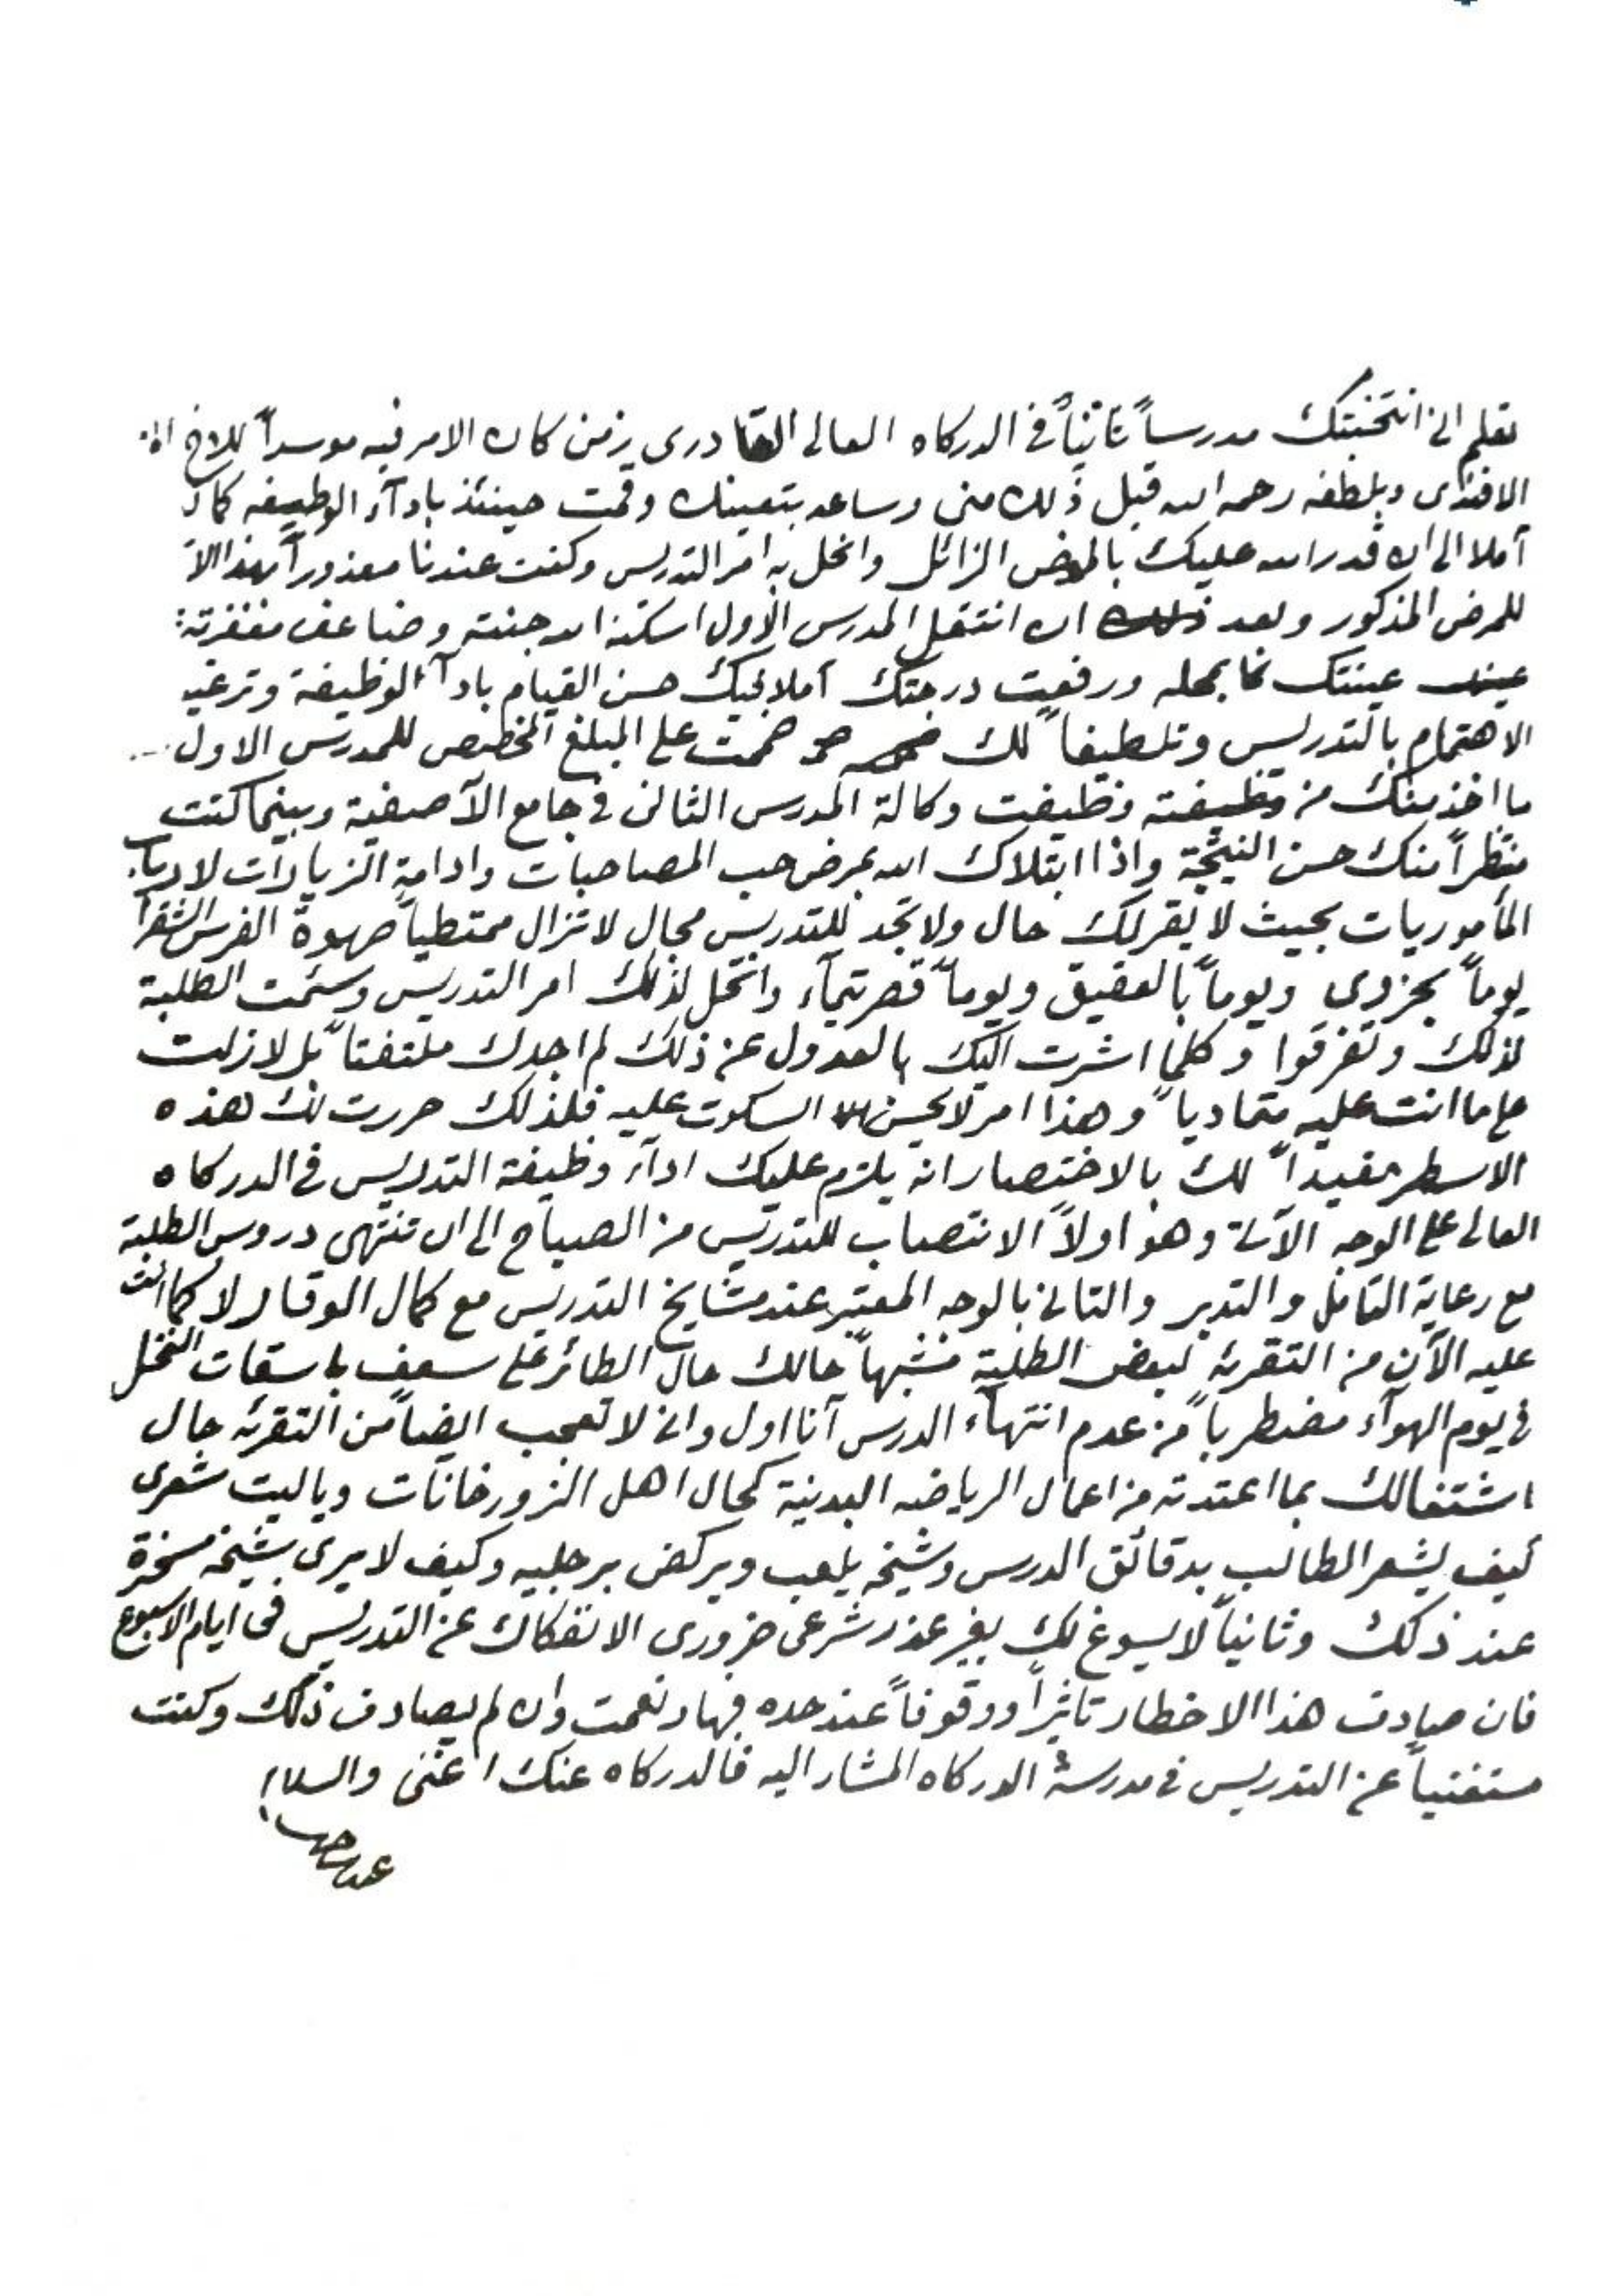 تعلم انى انتخبتك مدرساً ثانياً فى الدركاه العالى القادرى زمن كان الامر فيه موسداً للاخ
الافندى وبلطفه رحمه الله قبل ذلك منى وساعد بتعيينك وقمت حينئذ بادآء الوظيفه
آملا الى ان قدر الله عليك بالمرض الزائل وانحل به امر التدريس وكنت عندنا معذوراً بهذا
للمرض المذكور وبعد ان انتقل المدرس الاول اسكنه الله جنته وضاعف مغفرته
عينتك بمحله ورفعت درجتك آملا حسن القيام بادآء الوظيفة وترغيب
الاهتمام بالتدريس وتلطيفاً لك ضممت على المبلغ المخصص للمدرس الاول
ما اخذ منك من وظيفة وكالة المدرس الثانى فى جامع الآصفية وبينما كنت
منتظراً منك حسن النيتجة واذا ابتلاك الله بمرض حب المصاحبات وادامة الزيارات لارباب
المأموريات بحيث لا يقر لك حال ولا تجد للتدريس مجال لا تزال ممتطياً صهوة الفرس الشقرا
يوماً بحزوى ويوماً بالعقيق ويوماً قصر تيمآء وانحل لذلك امر التدريس وسئمت الطلبة
لذلك وتفرقوا وكلما اشرت اليك بالعدول عن ذلك لم اجدك ملتفتاً بل لازلت
على ما انت عليه متمادياً وهذا امر لا يحسن السكوت عليه فلذلك حررت لك هذه
الاسطر مفيداً لك بالاختصار انه يلزم عليك ادآء وظيفة التدريس فى الدركاه
العالى على الوجه الآتى وهو اولاً الانتصاب للتدريس من الصباح الى ان تنتهى دروس الطلبة
مع رعاية التامل والتدبر والتانى بالوجه المعتبر عند مشايخ التدريس مع كمال الوقار لا كما انت
عليه الآن من التقرئه لبعض الطلبة مشبهاً حالك حال الطائر على سعف باسقات النخل
فى يوم الهوآء مضطرباً من عدم انتهآء الدرس آنا اول وانى لا تعجب ايضاً من التقرئه حال
اشتغالك بما اعتدته من اعمال الرياضه البدنية كحال اهل الزورخانات وياليت شعرى
كيف يشعر الطالب بدقائق الدرس وشيخه يلعب ويركض برجليه وكيف لا يرى شيخه مسخرة
عند ذلك وثانياً لا يسوغ لك بغير عذر شرعى ضرورى الانفكاك عن التدريس فى ايام الاسبوع
فان صادف هذا الاخطار تاثيراً ووقوفاً عند حده فبها ونعمت وان لم يصادف ذلك وكنت
مستغنياً عن التدريس فى مدرسة الدركاه المشار اليه فالدركاه عنك اغنى والسلام